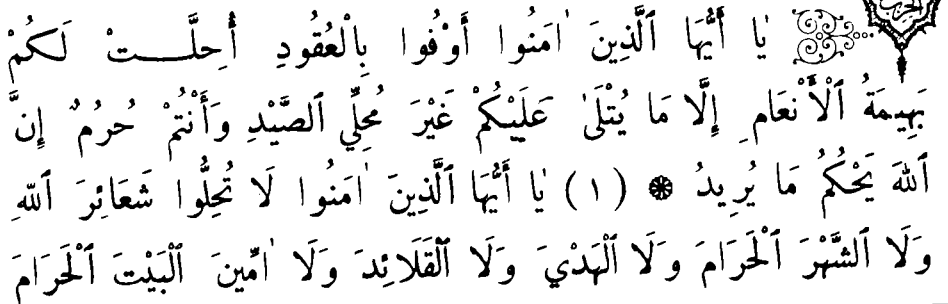 يٰا أَيُّهَا ٱلَّذِينَ اٰمَنُوا أَوْفُوا بِالْعُقُودِ أُحِلَّـــتْ لَكُمْ
بَهِيمَةُ ٱلْأَنْعَامِ إِلَّا مَا يُتْلَىٰ عَلَيْكُمْ غَيْرَ مُحِلِّي ٱلصَّيْدِ وَأَنْتُمْ حُرُمٌ إِنَّ
ٱللّٰهَ يَحْكُمُ مَا يُرِيدُ ❋ (١) يٰا أَيُّهَا ٱلَّذِينَ اٰمَنُوا لَا تُحِلُّوا شَعَائِرَ ٱللّٰهِ
وَلَا ٱلشَّهْرَ ٱلْحَرَامَ وَلَا ٱلْهَدْيَ وَلَا ٱلْقَلَائِدَ وَلَا اٰمِّينَ ٱلْبَيْتَ ٱلْحَرَامَ